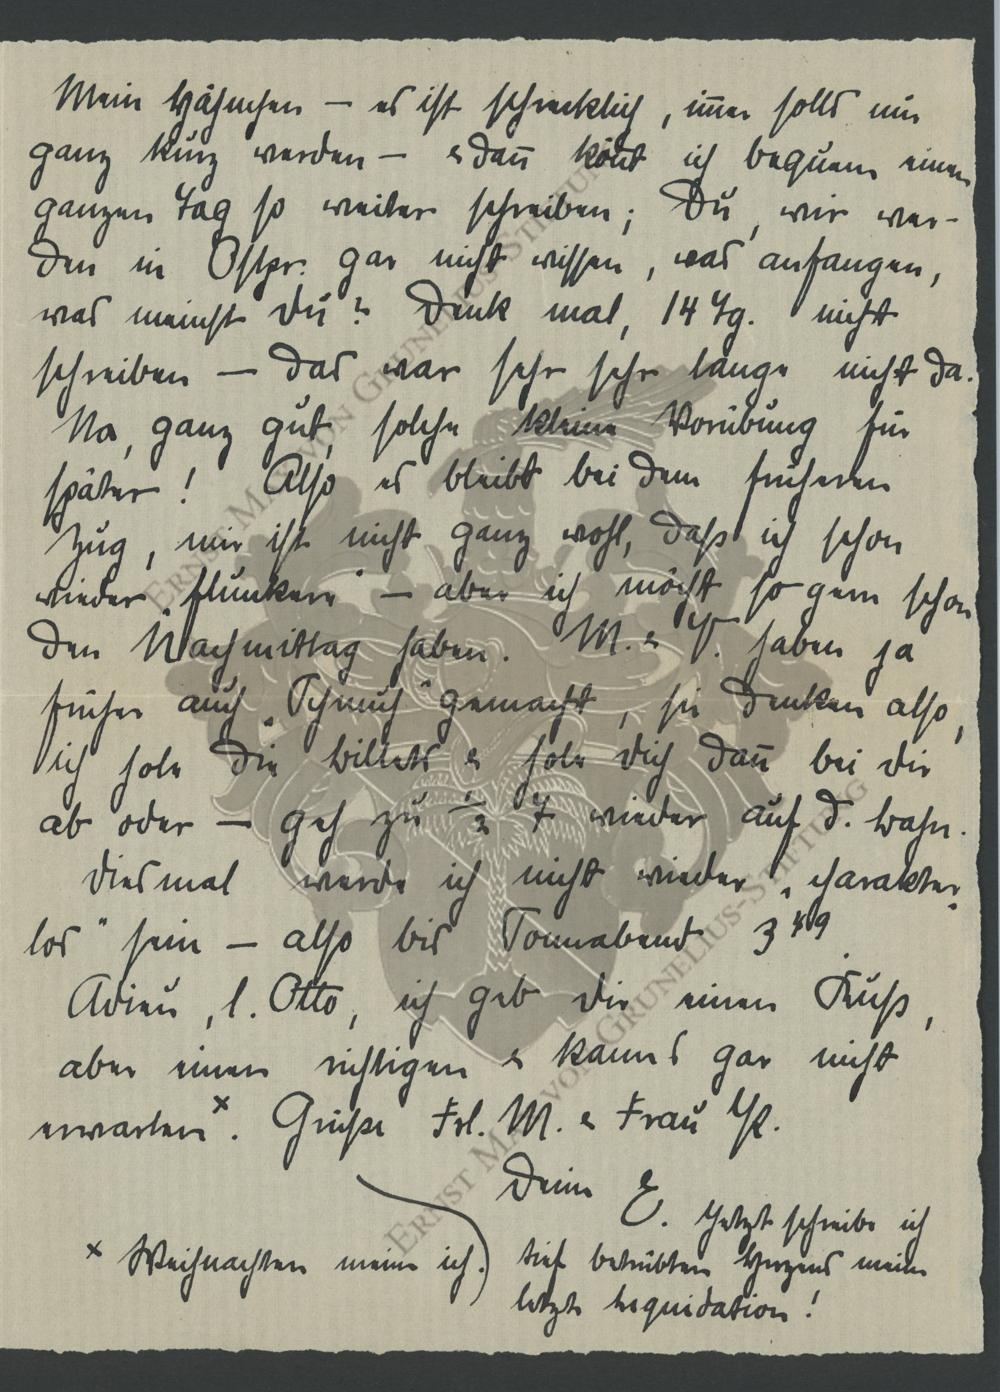 Mein Hähnchen – es ist schrecklich, im̅er solls nur
ganz kurz werden – & dan̅ kön̅t ich bequem einen
ganzen Tag so weiter schreiben; Du, wir wer-
den in Ostpr. gar nicht wissen, was anfangen,
was meinst Du? Denk mal, 14 Tg. nicht
schreiben – das war sehr sehr lange nicht da.
Na, ganz gut, solche kleine Vorübung für
später! Also es bleibt bei dem früheren
Zug, mir ist nicht ganz wohl, daß ich schon
wieder „flunkere“ – aber ich möcht so gern schon
den Nachmittag haben. M. & V. haben ja
früher auch „Schmuh“ gemacht, sie denken also,
ich hole die Billets & hole Dich dan̅ bei Dir
ab oder – geh zu ½ 7 wieder auf d. Bahn.
Diesmal werde ich nicht wieder „charakter-
los“ sein – also bis Sonnabend 3 49.
Adieu, l. Otto, ich geb Dir einen Kuß,
aber einen richtigen & kanns gar nicht
erwarten x. Grüße Frl. M. & Frau P.
Deine E.
x Weihnachten meine ich.)
Jetzt schreibe ich
tief betrübten Herzens meine
letzte Liquidation!
ERNST MAX VON GRUNELIUS-STIFTUNG
ERNST MAX VON GRUNELIUS-STIFTUNG